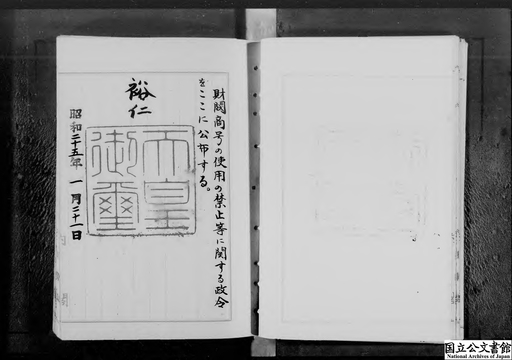 財閥商号の使用の禁止等に関する政令
をここに公布する。
裕仁
天皇
御璽
昭和二十五年一月二十一日
国立公文書館
National Archives of Japan